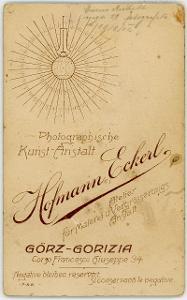 Photographische
Kunst-Anstalt
Hofmann, Eckerl
Atelier
für Malerei u. Vergrösserung
Anstalt
GÖRZ-GORIZIA
Corso Francesco Giuseppe 34.
Negative bleiben reservirt
Si conservano le negative